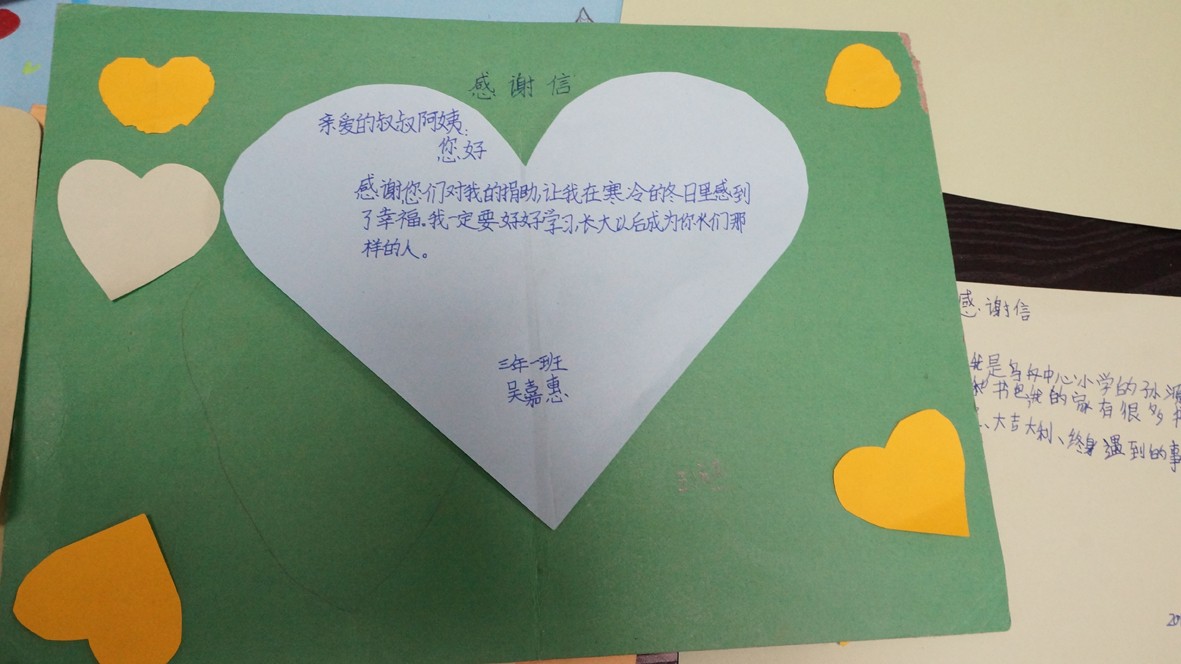 感谢信
亲爱的叔叔阿姨:
您好
感谢您们对我的捐助,让我在寒冷的冬日里感到
了幸福。我一定要好好学习,长大以后成为你们那
样的人。
三年一班
吴嘉惠
感谢信
我是乌丹中心小学的孙
书包我的家有很多
、大吉大利、终身遇到的事